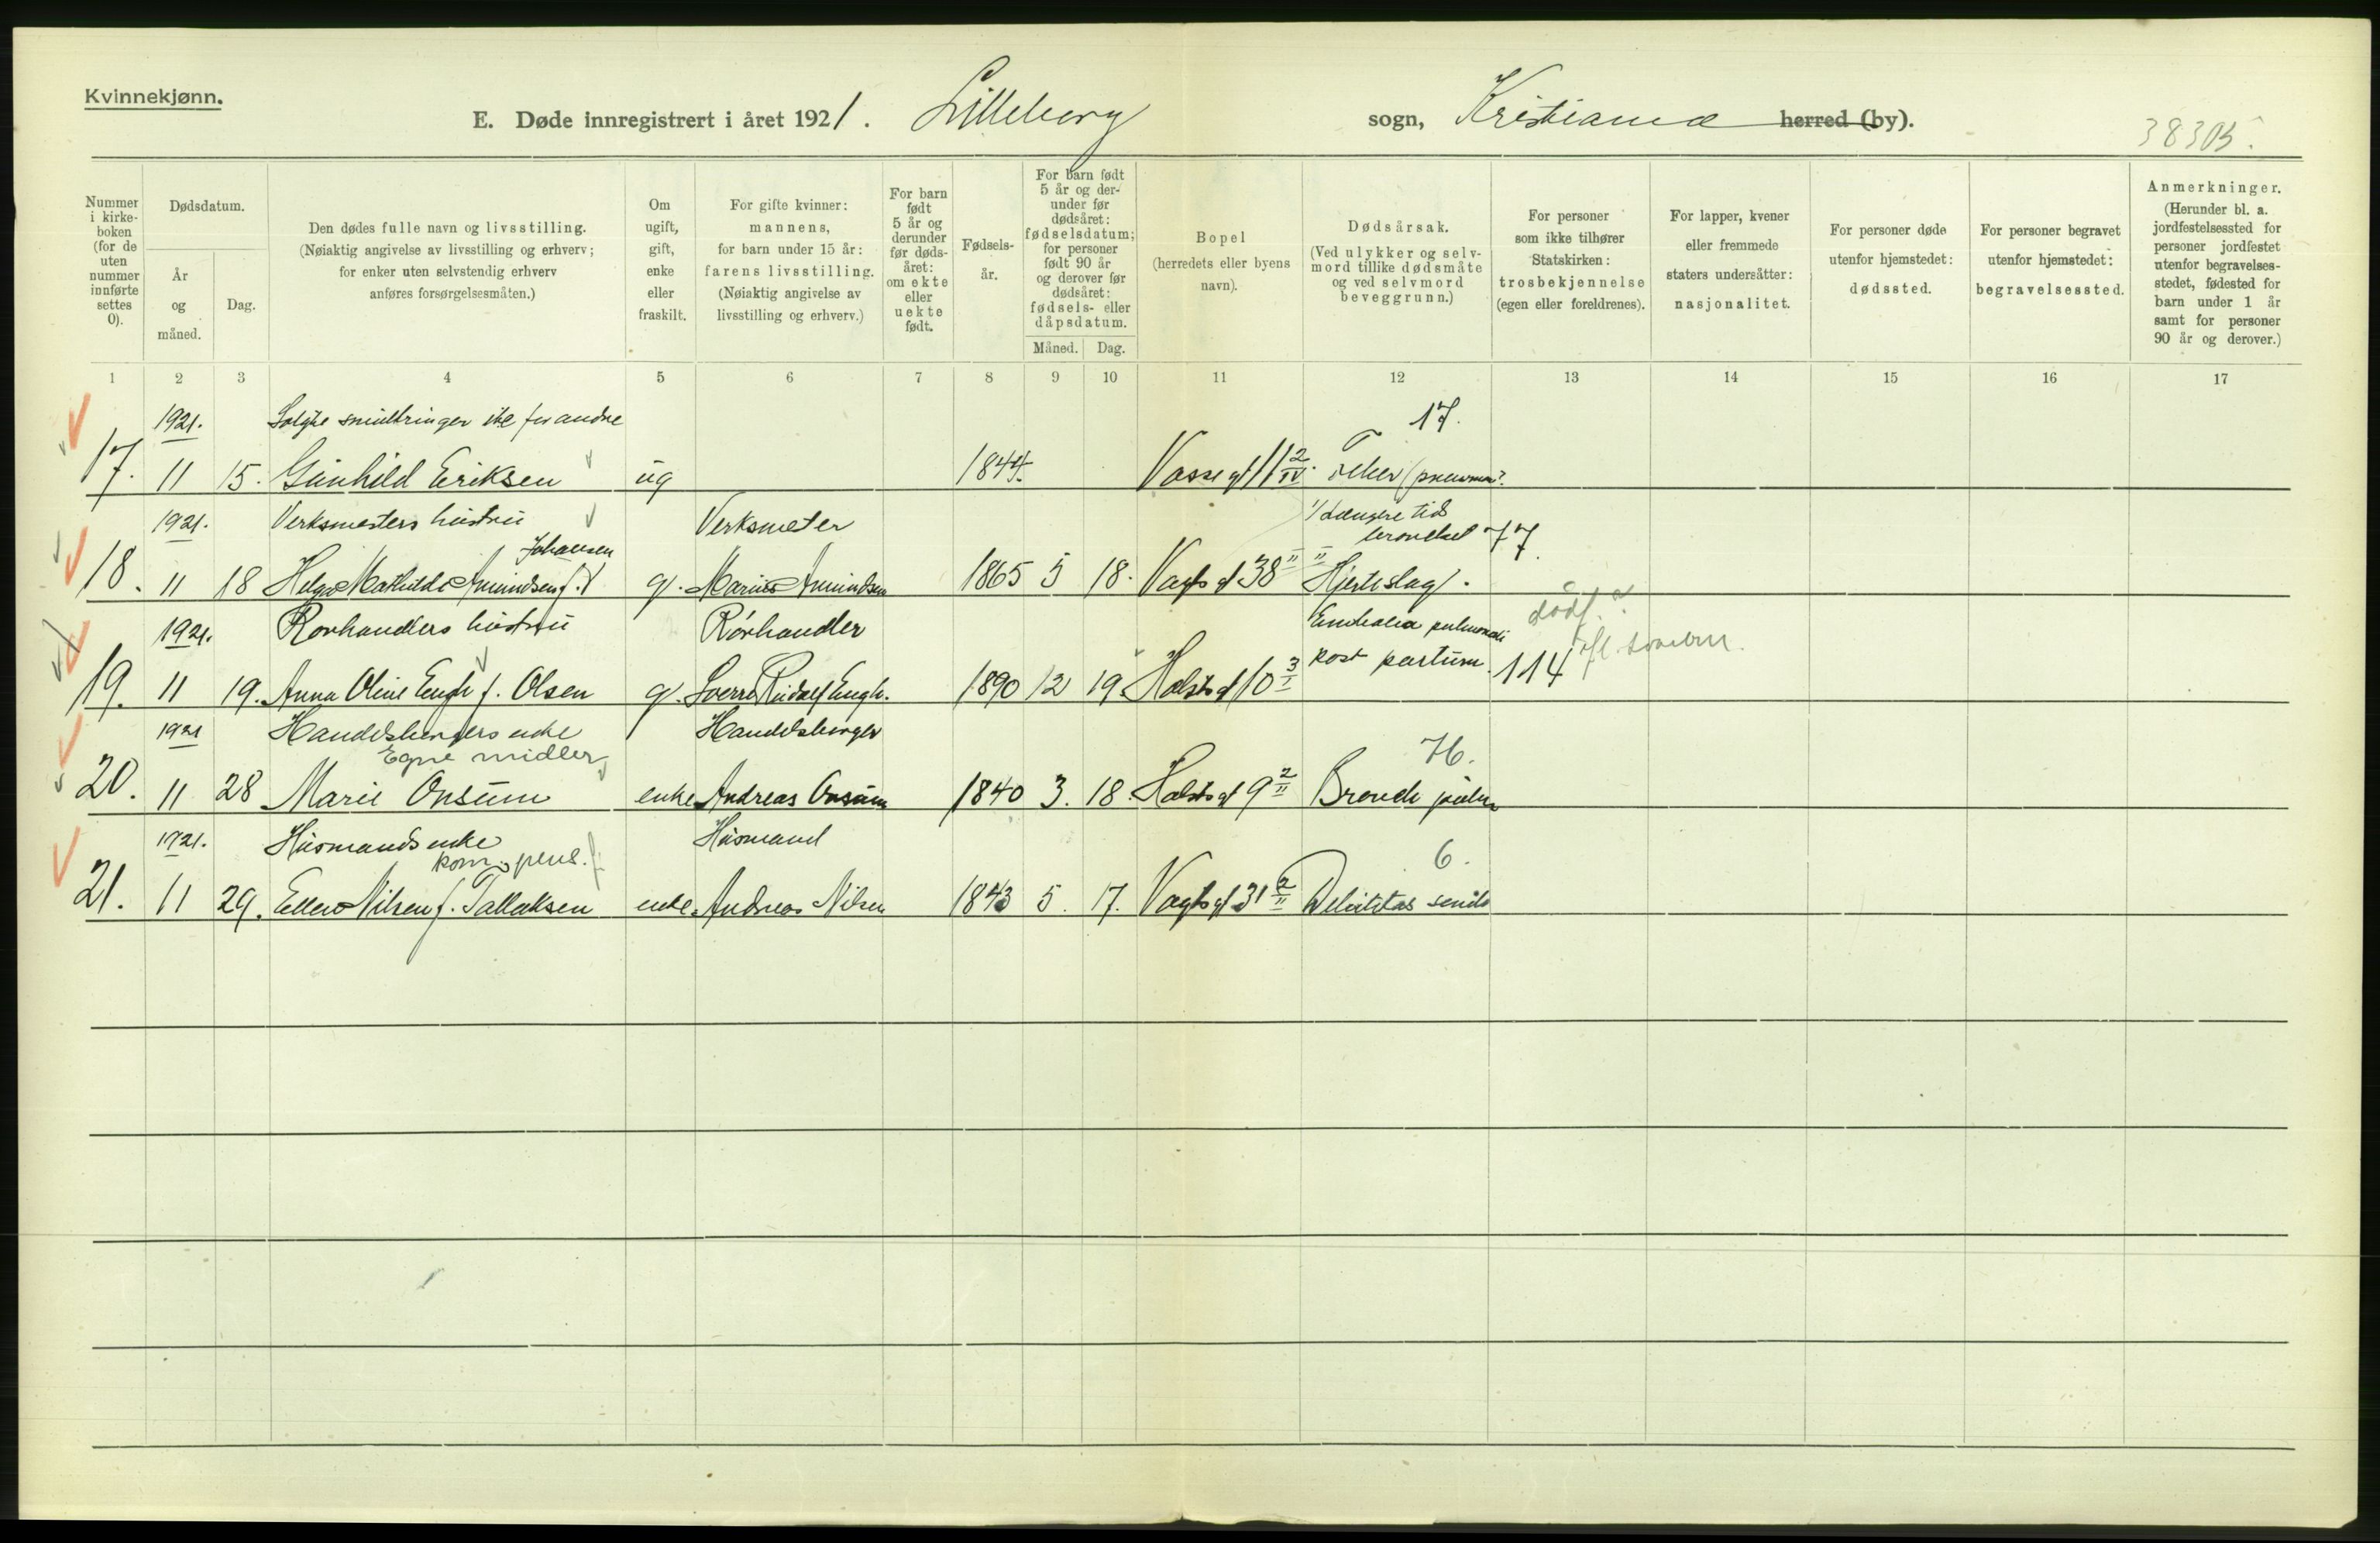 Kvinnekjønn.
E. Døde innregistrert i året 1921. Lilleborg sogn, Kristiania herred (by).
38305.
Nummer i kirke-boken (for de uten nummer innførte settes 0).
Dødsdatum.
År og måned.
Dag.
Den dødes fulle navn og livsstilling.
(Nøiaktig angivelse av livsstilling og erhverv;
for enker uten selvstendig erhverv
anføres forsørgelsesmåten.)
Om ugift, gift, enke eller fraskilt.
For gifte kvinner:
mannens,
for barn under 15 år:
farens livsstilling.
(Nøiaktig angivelse av
livsstilling og erhverv.)
For barn født 5 år og derunder før døds-året: om ekte eller uekte født.
Fødsels-år.
For barn født 5 år og der-under før dødsåret: fødselsdatum; for personer født 90 år og derover før dødsåret: fødsels- eller dåpsdatum.
Måned. Dag.
Bopel
(herredets eller byens
navn).
Dødsårsak.
(Ved ulykker og selv-
mord tillike dødsmåte
og ved selvmord
beveggrunn.)
For personer
som ikke tilhører
Statskirken:
trosbekjennelse
(egen eller foreldrenes).
For lapper, kvener
eller fremmede
staters undersåtter:
nasjonalitet.
For personer døde
utenfor hjemstedet:
dødssted.
For personer begravet
utenfor hjemstedet:
begravelsessted.
Anmerkninger.
(Herunder bl. a.
jordfestelsessted for
personer jordfestet
utenfor begravelses-
stedet, fødested for
barn under 1 år
samt for personer
90 år og derover.)
1 2 3 4 5 6 7 8 9 10 11 12 13 14 15 16 17
1921. Solgte smultringer for andre 17.
17. 11 15. Gunhild Eriksen ug 1844. Vossegt 11 2/IV
1921. Verksmesters hustru Verksmester længere tid
Johansen 77.
18. 11 18 Helga Mathilde Amundsen f. g. Marius Amundsen 1865 5 18. Vogts gt 38 II Hjerteslag.
1921. Rørhandlers hustru Rørhandler Embolia pulmonali
post partum. 114
19. 11 19. Anna Oline Engh f. Olsen g. Sverre Rudolf Engh. 1890 12 19 Holsts gt 10 3/I
1921 Handelsborgers enke Handelsborger
Egne midler 76.
20. 11 28 Marie Onsum enke Andreas Onsum 1840 3. 18. Holsts gt 9 2/II
1921. Husmands enke Husmand
kom. pens. 6.
21. 11 29. Ellen Nilsen f. Tallaksen enke Andreas Nilsen 1843 5. 17. Vogts gt 31 2/II Debilitas senilis